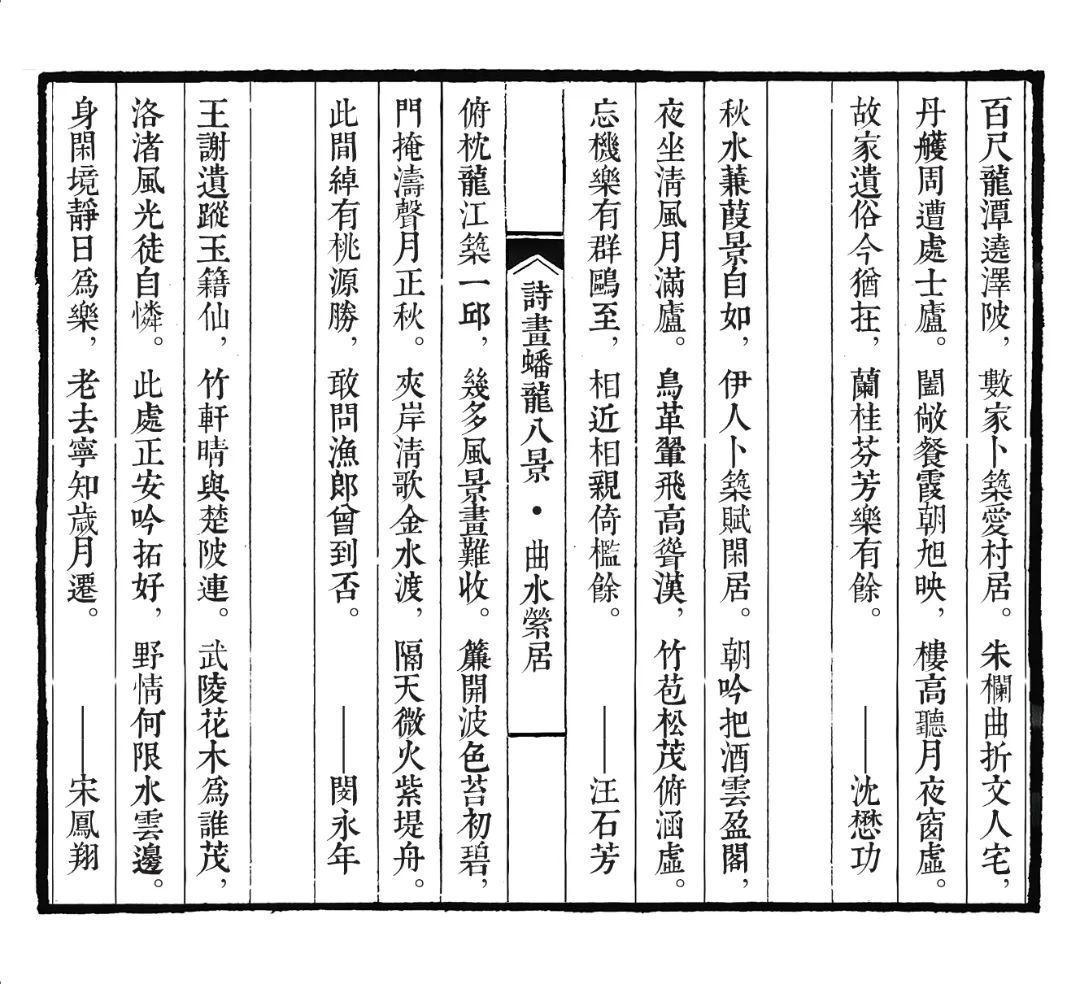 百尺龍潭遶澤陂，數家卜築愛村居。朱欄曲折文人宅，
丹艧周遭處士廬。闔敞餐霞朝旭映，樓高聽月夜窗虛。
故家遺俗今猶在，蘭桂芬芳樂有餘。——沈懋功
秋水蒹葭景自如，伊人卜築賦閑居。朝吟把酒雲盈閣，
夜坐清風月滿廬。鳥革翬飛高聳漢，竹苞松茂俯涵虛。
忘機樂有群鷗至，相近相親倚檻餘。——汪石芳
詩畫蟠龍八景·曲水縈居
俯枕龍江築一邱，幾多風景畫難收。簾開波色苔初碧，
門掩濤聲月正秋。夾岸清歌金水渡，隔天微火紫堤舟。
此間綽有桃源勝，敢問漁郎曾到否。——閔永年
王謝遺蹤玉籍仙，竹軒晴與楚陂連。武陵花木為誰茂，
洛渚風光徒自憐。此處正安吟拓好，野情何限水雲邊。
身閑境靜日為樂，老去寧知歲月遷。——宋鳳翔